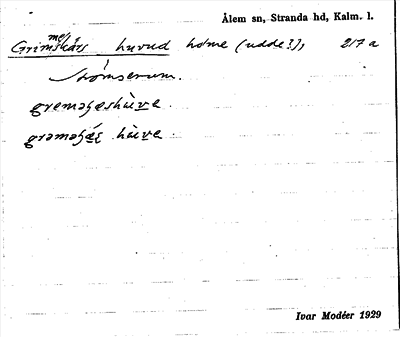 Ålem sn, Stranda hd, Kalm. l.
Grimskärs huvud holme (udde?), 217 a
me/
Strömserum.
gremaʂæshäve.
graməʂǽʂ häve.
Ivar Modéer 1929